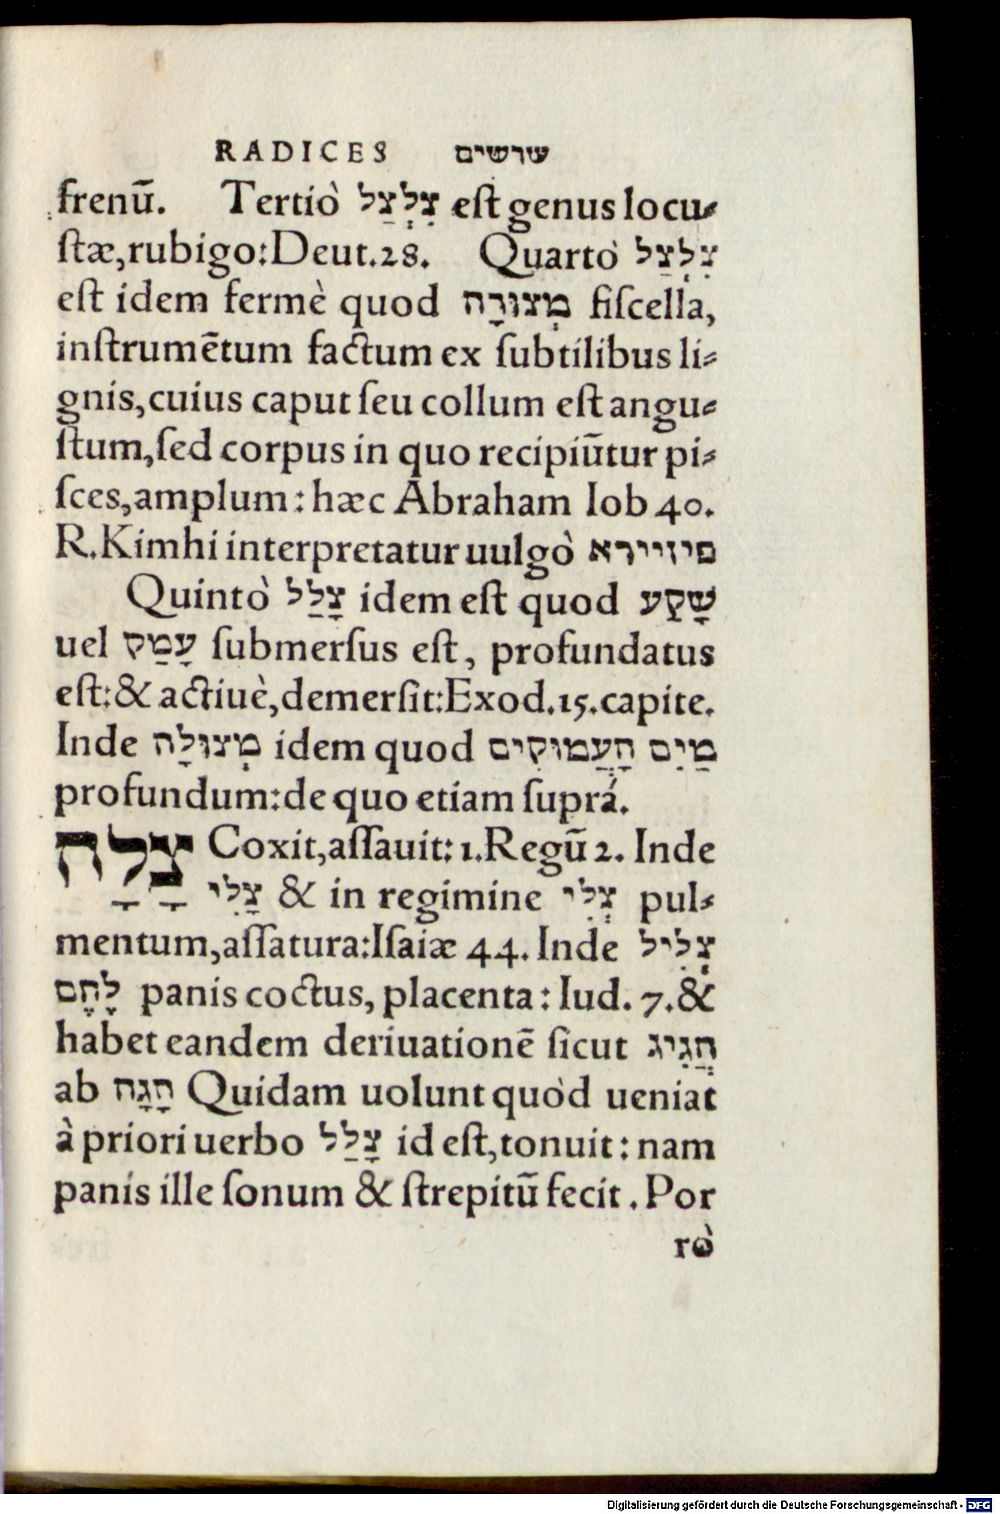 RADICES שרשים
frenū. Tertiò צִלְצַל eſt genus locu⸗
ſtæ,rubigo:Deut.28. Quartò צִלְצַל
eſt idem fermè quod מְצוּרָה fiſcella,
inſtrumētum factum ex ſubtilibus li⸗
gnis,cuius caput ſeu collum eſt angu⸗
ſtum,ſed corpus in quo recipiūtur pi⸗
ſces,amplum:hæc Abraham Iob 40.
R.Kimhi interpretatur uulgò פיזיירא
Quintò צָלַל idem eſt quod שָׁקַע
uel עָמַק ſubmerſus eſt, profundatus
eſt:& actiuè,demerſit:Exod.15.capite.
Inde מְצוּלָה idem quod מַיִם הָעֲמוּקִים
profundum:de quo etiam ſuprá.
צָלָה Coxit,aſſauit:1.Regū 2. Inde
צָלִי & in regimine צְלִי pul⸗
mentum,aſſatura:Iſaiæ 44. Inde צְלִיל
לֶחֶם panis coctus, placenta:Iud. 7.&
habet eandem deriuationē ſicut הֲגִיג
ab הָגָה Quidam uolunt quòd ueniat
à priori uerbo צָלַל id eſt,tonuit:nam
panis ille ſonum & ſtrepitū fecit.Por
rò
Digitalisierung gefördert durch die Deutsche Forschungsgemeinschaft - DFG